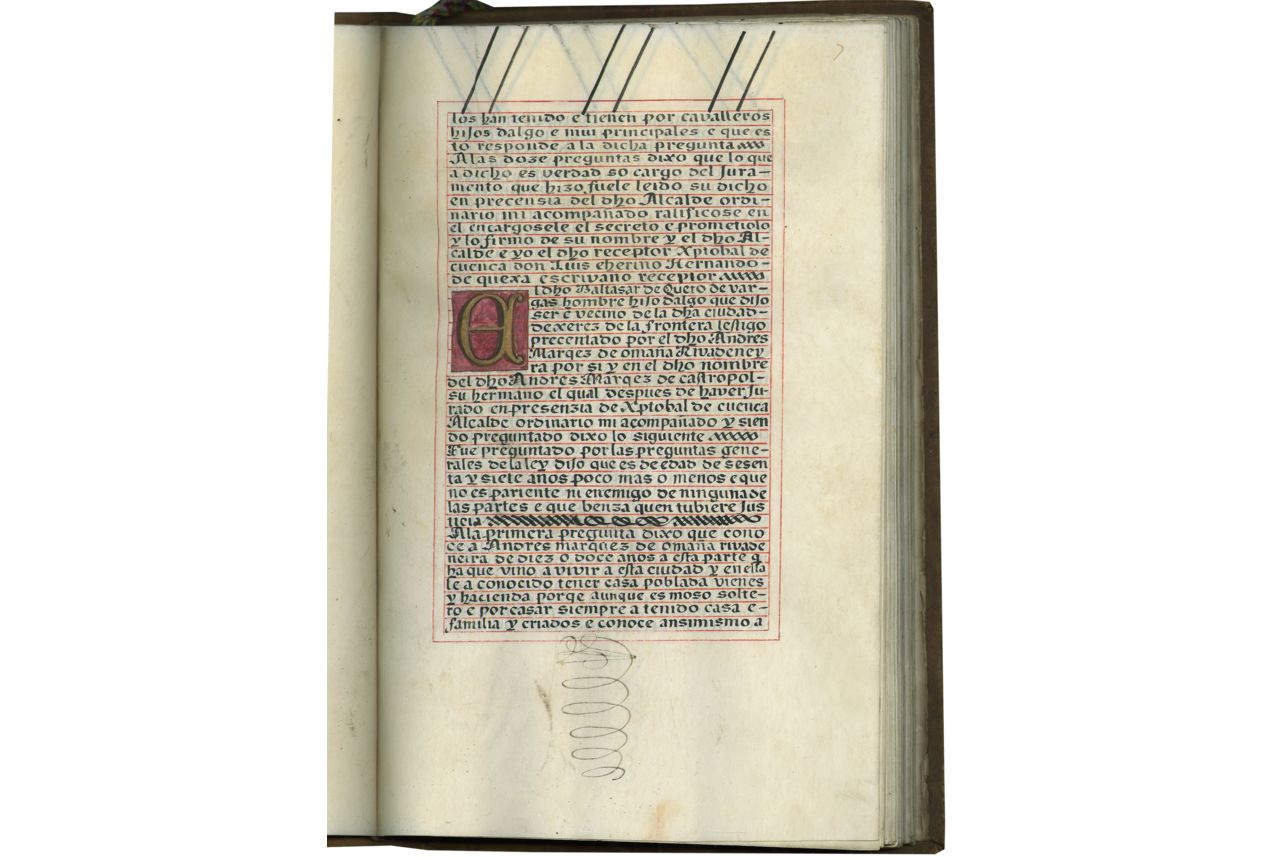 los han tenido e tienen por cavalleros
hijos dalgo e mui principales e que es
to responde a la dicha pregunta
A las doze preguntas dixo que lo que
a dicho es verdad so cargo del Jura-
mento que hizo fuele leido su dicho
en precensia del dho Alcalde ordi-
nario mi acompañado ratificose en
el encargosele el secreto e prometiolo
y lo firmo de su nombre y el dho Al-
calde e yo el dho receptor Xptobal de
cuenca don Luis eherino Hernando-
de quexa escrivano receptor
El dho Baltasar de Queto de var-
gas hombre hijo dalgo que dijo
ser e vecino de la dha ciudad-
de xerez de la frontera testigo
precentado por el dho Andres
Marqez de omaña Rivadeney
ra por si y en el dho nombre
del dho Andres Marqez de castropol-
su hermano el qual despues de haver Ju-
rado en presenzia de Xptobal de cuenca
Alcalde ordinario mi acompañado y sien
do preguntado dixo lo siguiente
Fue preguntado por las preguntas gene-
rales de la ley dijo que es de edad de sesen
ta y siete años poco mas o menos e que
no es pariente ni enemigo de ninguna de
las partes e que benza quen tubiere Jus
ticia
A la primera pregunta dixo que cono
ce a Andres marquez de omaña rivade
neira de diez o doce años a esta parte q
ha que vino a vivir a esta ciudad y en ella
le a conocido tener casa poblada vienes
y hacienda porqe aunque es moso solte-
ro e por casar siempre a tenido casa e-
familia y criados e conoce ansimismo a